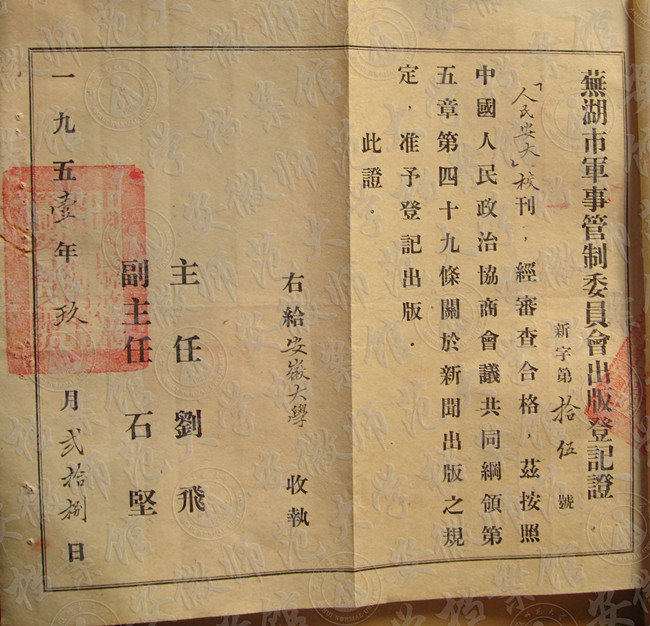 蕪湖市軍事管制委員會出版登記證
新字第拾伍號
「人民安大」校刊，經審查合格，茲按照
中國人民政治協商會議共同綱領第
五章第四十九條關於新聞出版之規
定，准予登記出版．
此證．
右給安徽大學 收執
主任劉飛
副主任石堅
一九五壹年玖月貳拾捌日